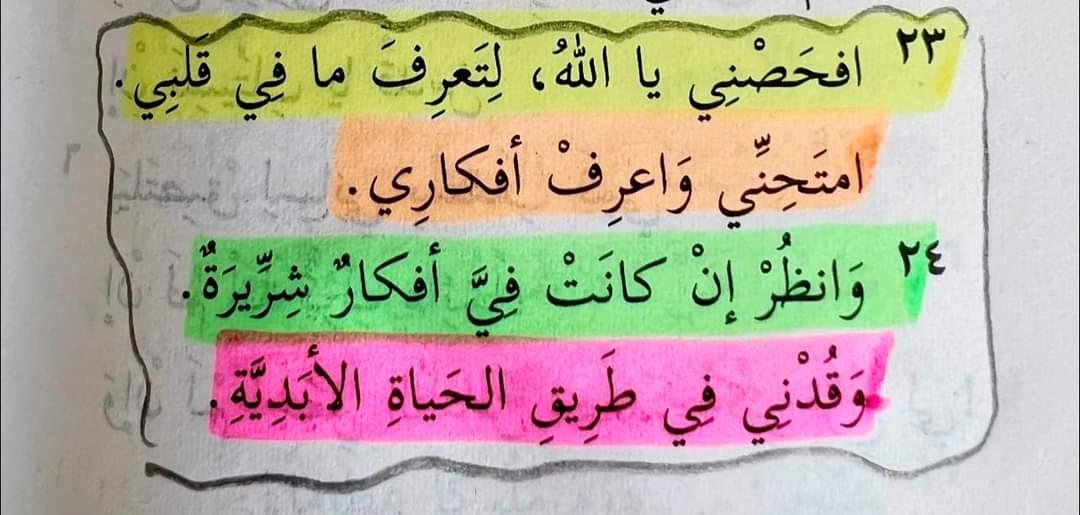 ٢٣ افحَصْنِي يا اللهُ، لِتَعرِفَ ما فِي قَلبِي.
امتَحِنِّي وَاعرِفْ أفكارِي.
٢٤ وَانظُرْ إنْ كانَتْ فِيَّ أفكارٌ شِرِّيرَةٌ.
وَقُدْنِي فِي طَرِيقِ الحَياةِ الأبَدِيَّةِ.